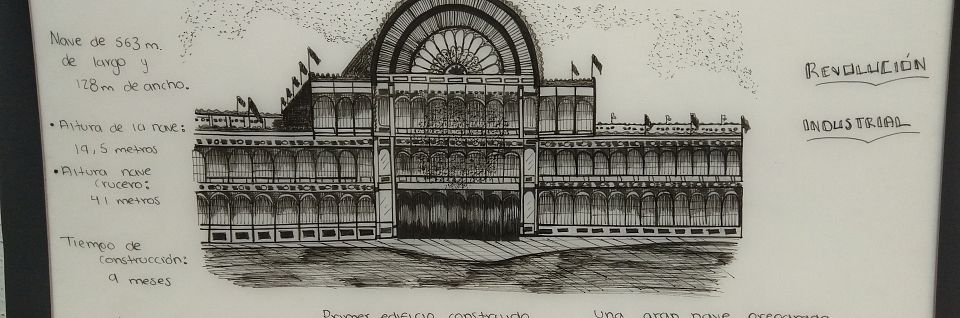 Nave de 563 m.
de largo y
128m de ancho.
• Altura de la nave:
19,5 metros
• Altura nave
crucero:
41 metros
Tiempo de
construcción:
9 meses
REVOLUCIÓN
INDUSTRIAL
Primer edificio construido
Una gran nave